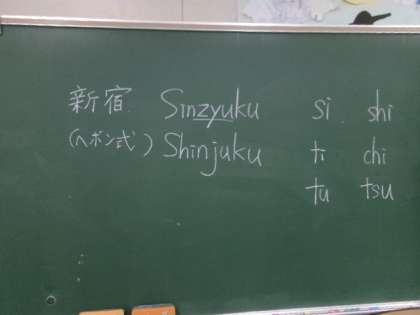 新宿 Sinzyuku si shi
(ヘボン式) Shinjuku ti chi
tu tsu